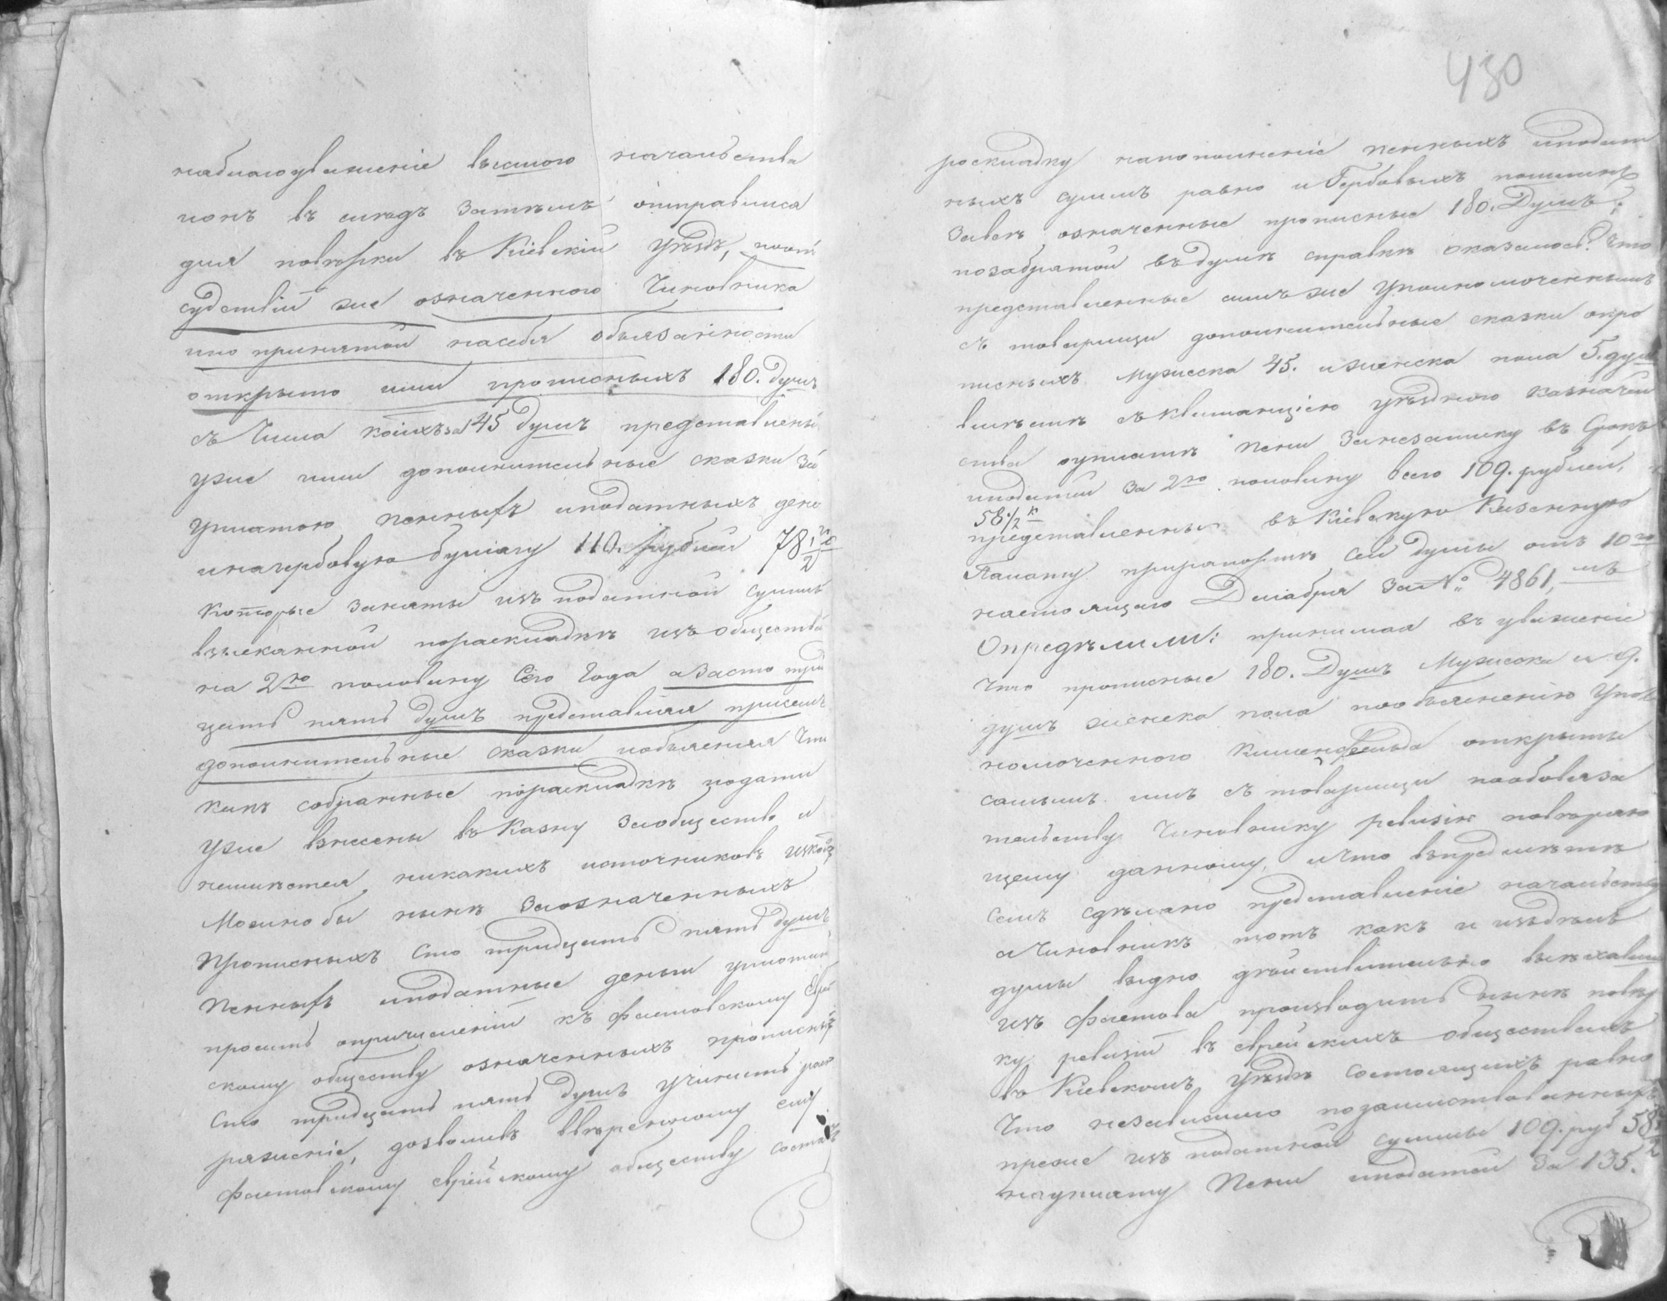 наблагоуваженіе высшого начальства
ионъ въ слѣдъ затѣмъ отправился
для повѣрки въ Кіевскій уѣздъ,
судствій же означенного Чиновника
ипо принятой насебя обязанности
открыто ими прописныхъ 180. душъ
съ числа коихъ за 45 душъ представлены
уже ими дополнительные сказки за
уплатою пенныхъ иподатныхъ дене
инагербовую бумагу 110. рублей 78 1/2 ко
которые заняты изъ податной суммы
взысканной пораскладкѣ изъ общества
на 2ю половину Сего Года азасто трид
цать пять душъ представляя присемъ
дополнительные сказки иобъясняя что
какъ собранные пораскладкѣ подати
уже внесены въ Казну заобщество и
неимѣется никакихъ источниковъ изкоих
можнобы нынѣ заозначенныхъ
прописныхъ сто тридцать пять душъ
пенныхъ иподатные деньги уплатить
просить опричисленіи къ фастовскому Еврей
скому обществу означенныхъ прописныхъ
сто тридцать пять душъ учинить распо
ряженіе, дозволивъ ввѣренному ему
фастовскому еврейскому обществу состав
430
роскладку напополненіе пенныхъ иподат
ныхъ суммъ равно и Гербовыхъ пошлинъ
завсѣ означенные прописные 180. Душъ;
позабратой въ думѣ справкѣ оказалось: что
представленные симъ же Уполномоченнымъ
съ товарищи дополнительные сказки опро
писныхъ мужеска 45. иженска пола 5. душ
вмѣстѣ съ квитанціею уѣзднаго казначей
ства оуплатѣ пени занезаписку въ Срокъ
иподатей за 2ю половину всего 109. рублей,
58 1/2 к
представленны въ Кіевскую Казенную
Палату прирапортѣ сей думы отъ 10го
настоящаго Декабря за № 4861,
Опредѣлили: принимая въ уваженіе
что прописные 180. Душъ Мужеска и 9.
душъ женска пола пообъясненію Упол
номоченного открыты
самимъ имъ съ товарищи пообовяза
тельству Чиновнику ревизіи повѣряю
щему данному, ичто впредмѣтѣ
семъ сдѣлано представленіе начальству
а чиновникъ тотъ какъ и изъдѣлъ
думы видно дѣйствительно выѣхавши
изъ Фастова производитъ нынѣ повѣр
ку ревизіи въ еврейскихъ обществахъ
въ Кіевскомъ уѣздѣ состоящихъ равно
что независимо позаимствованныхъ
прежде изъ податной суммы 109. руб 58 1/2
науплату Пени иподатей за 135.